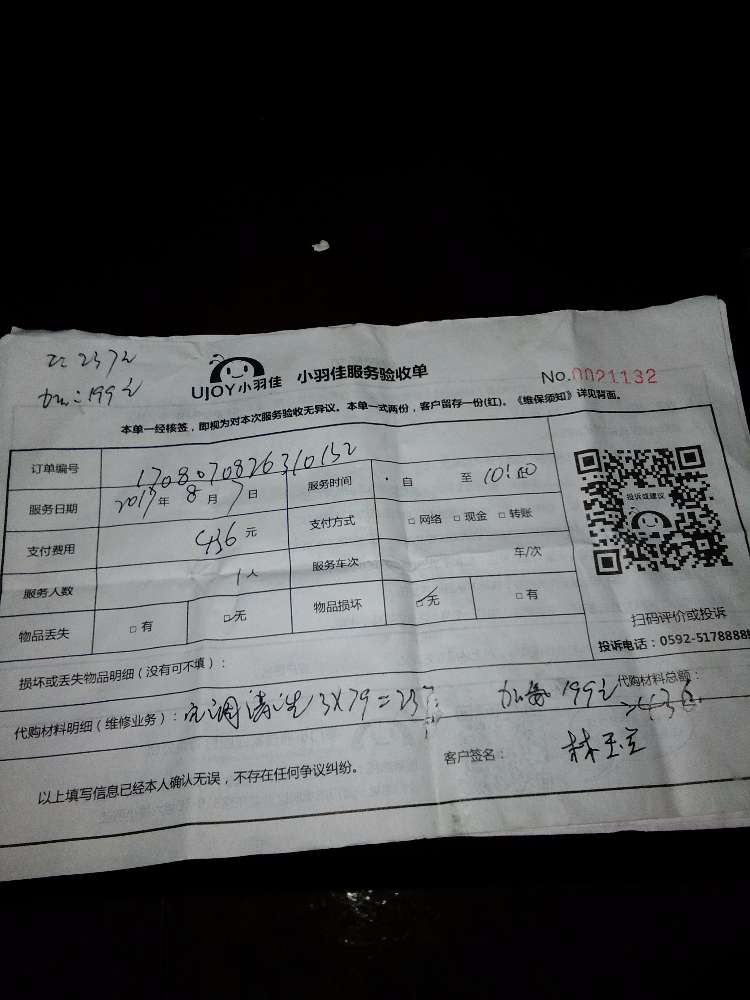 237元
加氟:199元
UJOY小羽佳 小羽佳服务验收单
No.0021132
本单一经核签，即视为对本次服务验收无异议。本单一式两份，客户留存一份(红)。《维保须知》详见背面。
订单编号 1708070826310152
服务日期 2017年 8月 7日 服务时间 自 至 10:00
支付费用 436元 支付方式 □网络 □现金 □转账
服务人数 1人 服务车次 车/次
物品丢失 □有 □无 物品损坏 □无 □有
投诉或建议
扫码评价或投诉
投诉电话：0592-5178888
损坏或丢失物品明细（没有可不填）：
代购材料明细（维修业务）：空调清洗3X79=237 加氟199元 代购材料总额：436
以上填写信息已经本人确认无误，不存在任何争议纠纷。 客户签名：林玉